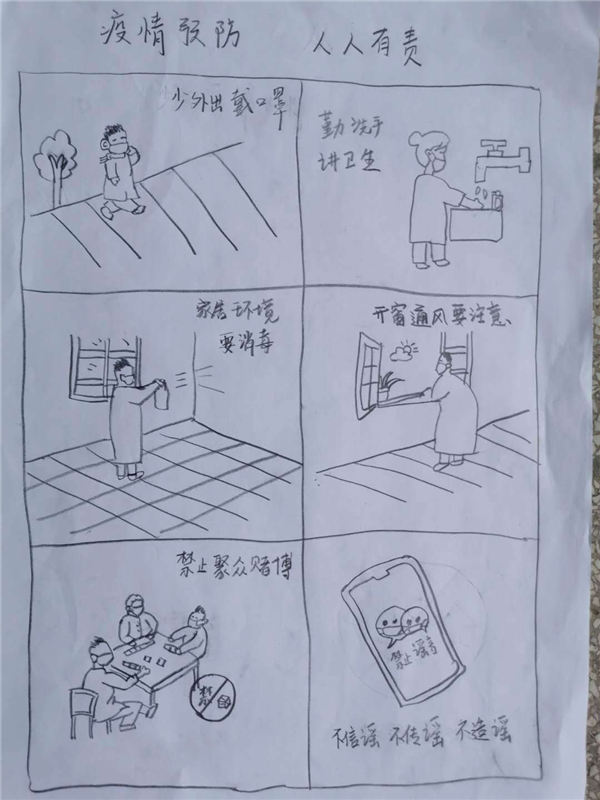 疫情预防 人人有责
少外出戴口罩
勤洗手
讲卫生
家居环境
要消毒
开窗通风要注意
禁止聚众赌博
禁
禁止谣言
不信谣 不传谣 不造谣